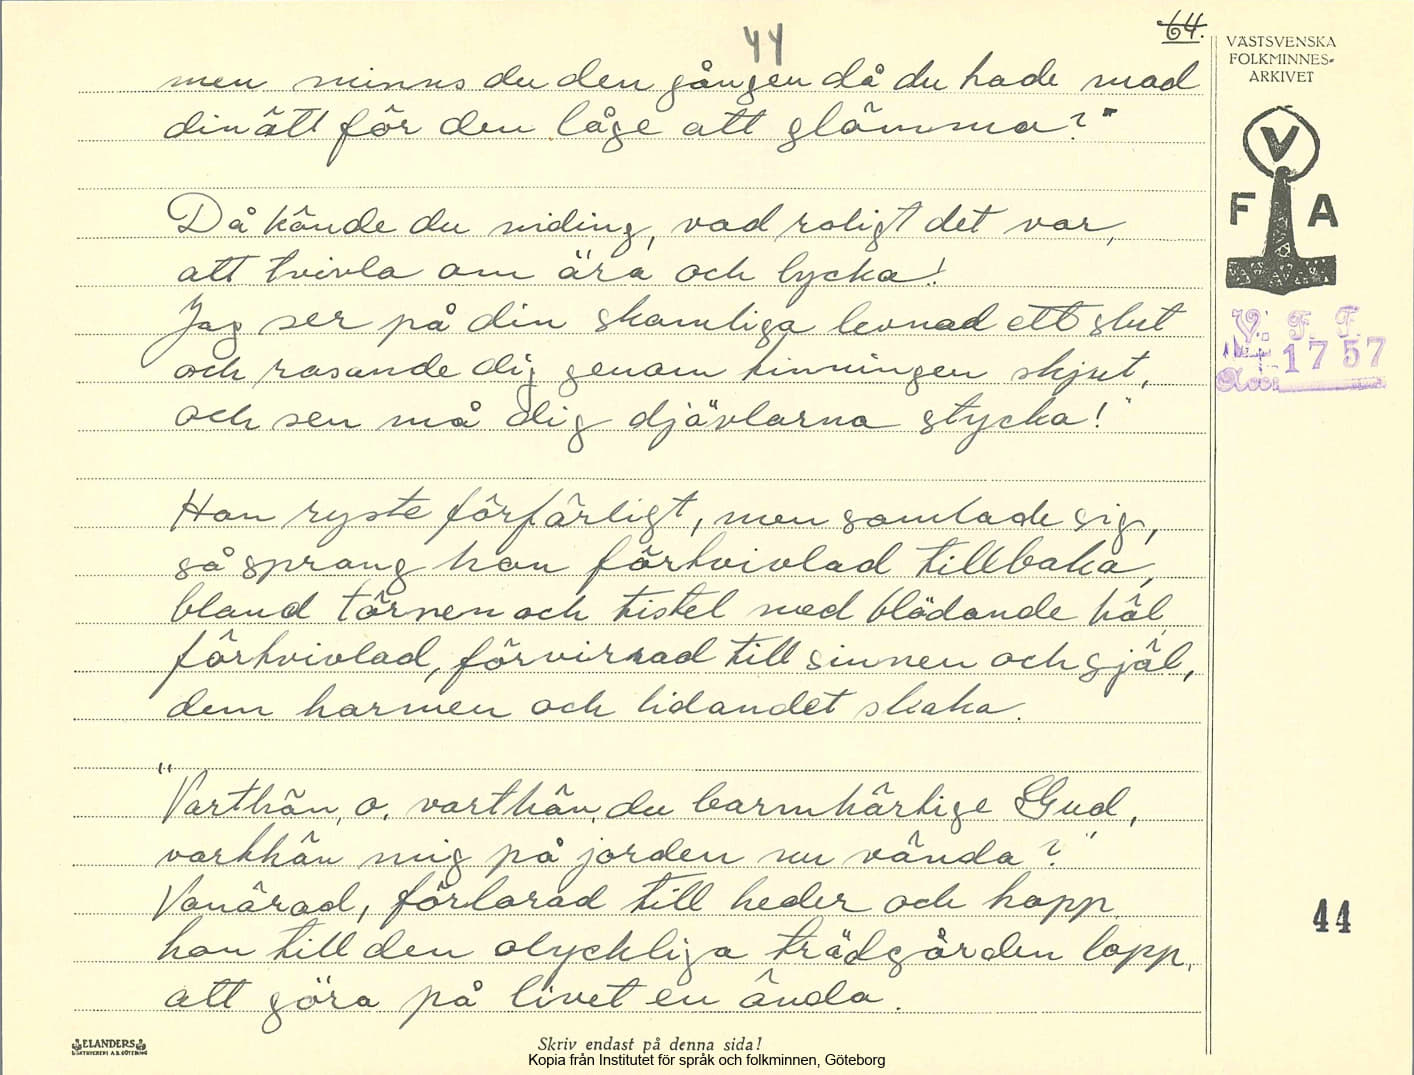 64.
44
VÄSTSVENSKA
FOLKMINNES-
ARKIVET
V
F A
V. F. F.
1757
men minns du den gången då du hade mod
din ätt för den låge att glömma?"
Då kände du niding, vad roligt det var,
att tvivla om ära och lycka!
Jag ser på din skamliga levnad ett slut
och rasande dig genom tinningen skjut,
och sen må dig djävlarna stycka!"
Han ryste förfärligt, men samlade sig,
så sprang han förtvivlad tillbaka,
bland törnen och tistel med blödande häl
förtvivlad, förvirrad till sinnen och själ,
dem harmen och lidandet skaka.
"Varthän, o, varthän, du barmhärtige Gud,
varthän mig på jorden nu vända?"
Vanärad, förlorad till heder och hopp
han till den olyckliga trädgården lopp,
att göra på livet en ända.
44
ELANDERS
Skriv endast på denna sida!
Kopia från Institutet för språk och folkminnen, Göteborg